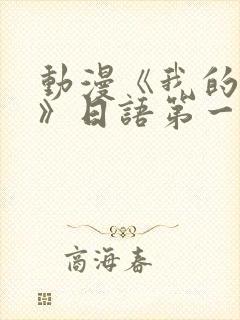 動漫《我的
》日語第一
商海春